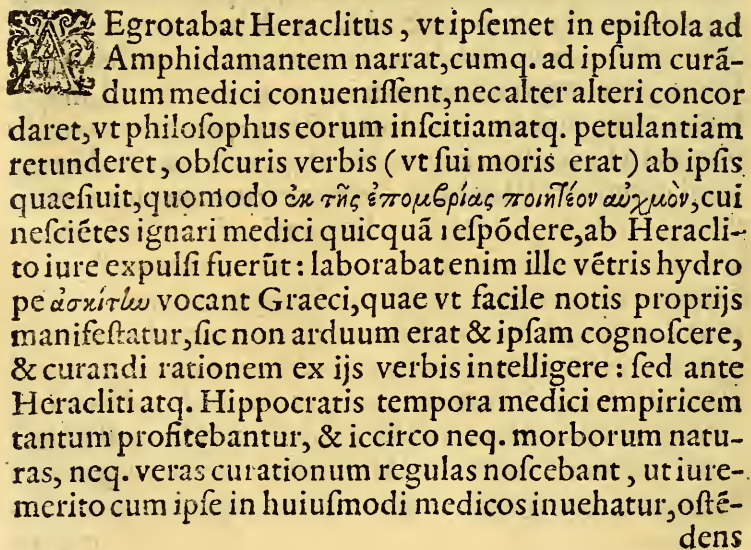 AEgrotabat Heraclitus, vt ipſemet in epiſtola ad
Amphidamantem narrat, cumq. ad ipſum curã-
dum medici conueniſſent, nec alter alteri concor
daret, vt philoſophus eorum inſcitiamatq. petulantiam
retunderet, obſcuris verbis (vt ſui moris erat) ab ipſis
quaeſiuit, quomodo ἐκ τῆς ἐπομβρίας ποιητέον αὐχμὸν, cui
neſciẽtes ignari medici quicquã reſpõdere, ab Heracli-
to iure expulſi fuerũt: laborabat enim ille vẽtris hydro
pe ἀσκίτlω vocant Graeci, quae vt facile notis proprijs
manifeſtatur, ſic non arduum erat & ipſam cognoſcere,
& curandi rationem ex ijs verbis intelligere: ſed ante
Heracliti atq. Hippocratis tempora medici empiricem
tantum profitebantur, & iccirco neq. morborum natu-
ras, neq. veras curationum regulas noſcebant, ut iure-
merito cum ipſe in huiuſmodi medicos inuehatur, oſtẽ-
dens